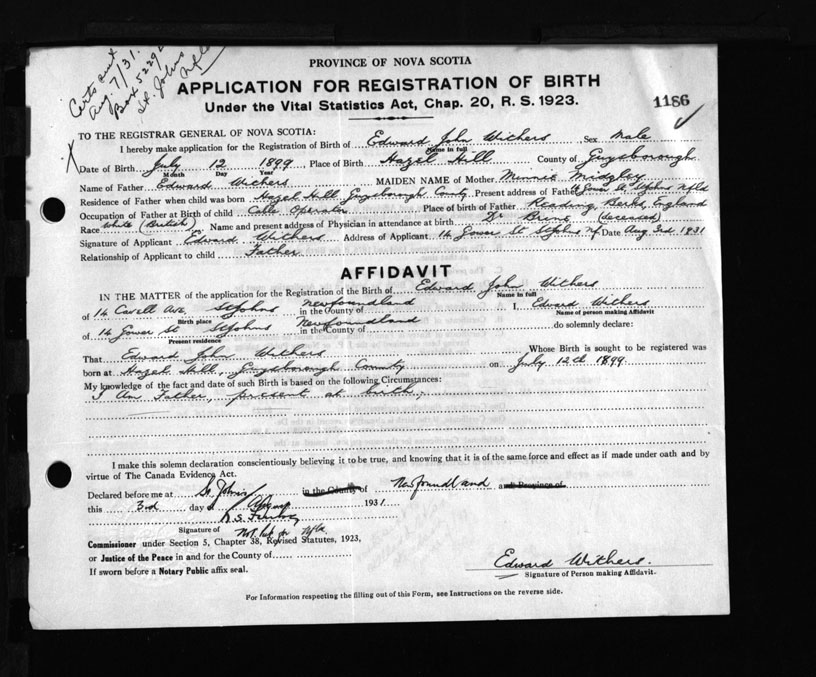 Certs sent
Aug. 7/31.
Box 5229
St. Johns
Nfld
PROVINCE OF NOVA SCOTIA
APPLICATION FOR REGISTRATION OF BIRTH
Under the Vital Statistics Act, Chap. 20, R. S. 1923.
1186
TO THE REGISTRAR GENERAL OF NOVA SCOTIA:
I hereby make application for the Registration of Birth of Edward John Withers Sex Male
Name in full
X Date of Birth July 12 1899, Place of Birth Hazel Hill County of Guysborough
Month Day Year
Name of Father Edward Withers MAIDEN NAME of Mother Minnie Midgley
Residence of Father when child was born Hazel Hill Guysborough County Present address of Father 14 Gower St. StJohns Nfld
Occupation of Father at Birth of child Cable Operator Place of birth of Father Reading, Berks, England
Race White (British) Name and present address of Physician in attendance at birth Dr (deceased)
Signature of Applicant Edward Withers Address of Applicant 14 Gower St StJohns Nf Date Aug 3rd 1931
Relationship of Applicant to child Father
AFFIDAVIT
IN THE MATTER of the application for the Registration of the Birth of Edward John Withers
Name in full
of 14 Cavell Ave, StJohns in the County of Newfoundland I, Edward Withers
Birth place Name of person making Affidavit
of 14 Gower St StJohns in the County of Newfoundland do solemnly declare:
Present residence
That Edward John Withers Whose Birth is sought to be registered was
born at Hazel Hill, Guysborough County on July 12th 1899.
My knowledge of the fact and date of such Birth is based on the following Circumstances:
I Am Father, present at birth.
I make this solemn declaration conscientiously believing it to be true, and knowing that it is of the same force and effect as if made under oath and by
virtue of The Canada Evidence Act.
Declared before me at St. John's in the County of Newfoundland and Province of
this 3rd day of August 1931
Signature of Not. Pub. for Nfld
Commissioner under Section 5, Chapter 38, Revised Statutes, 1923,
or Justice of the Peace in and for the County of
If sworn before a Notary Public affix seal.
Edward Withers.
Signature of Person making Affidavit.
For Information respecting the filling out of this Form, see Instructions on the reverse side.